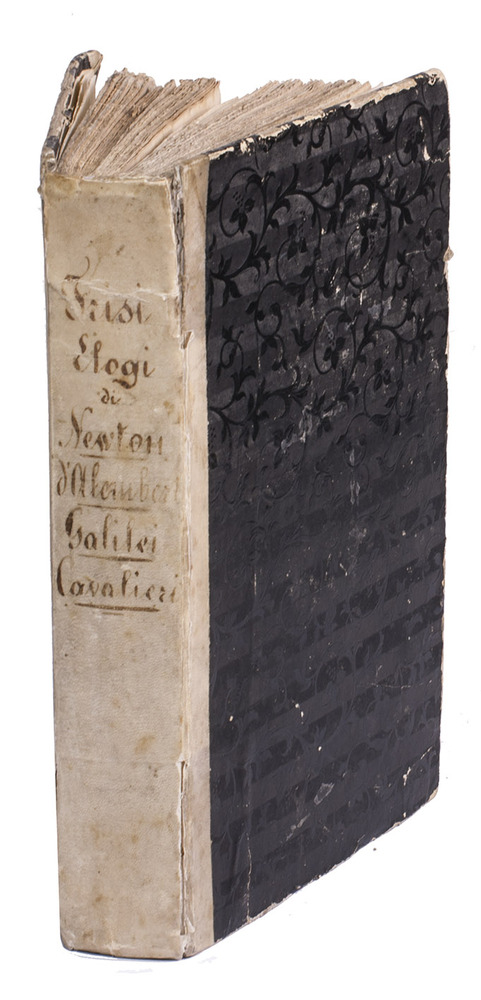 Frisi
Elogi
di
Newton
d'Alembert
Galilei
Cavalieri